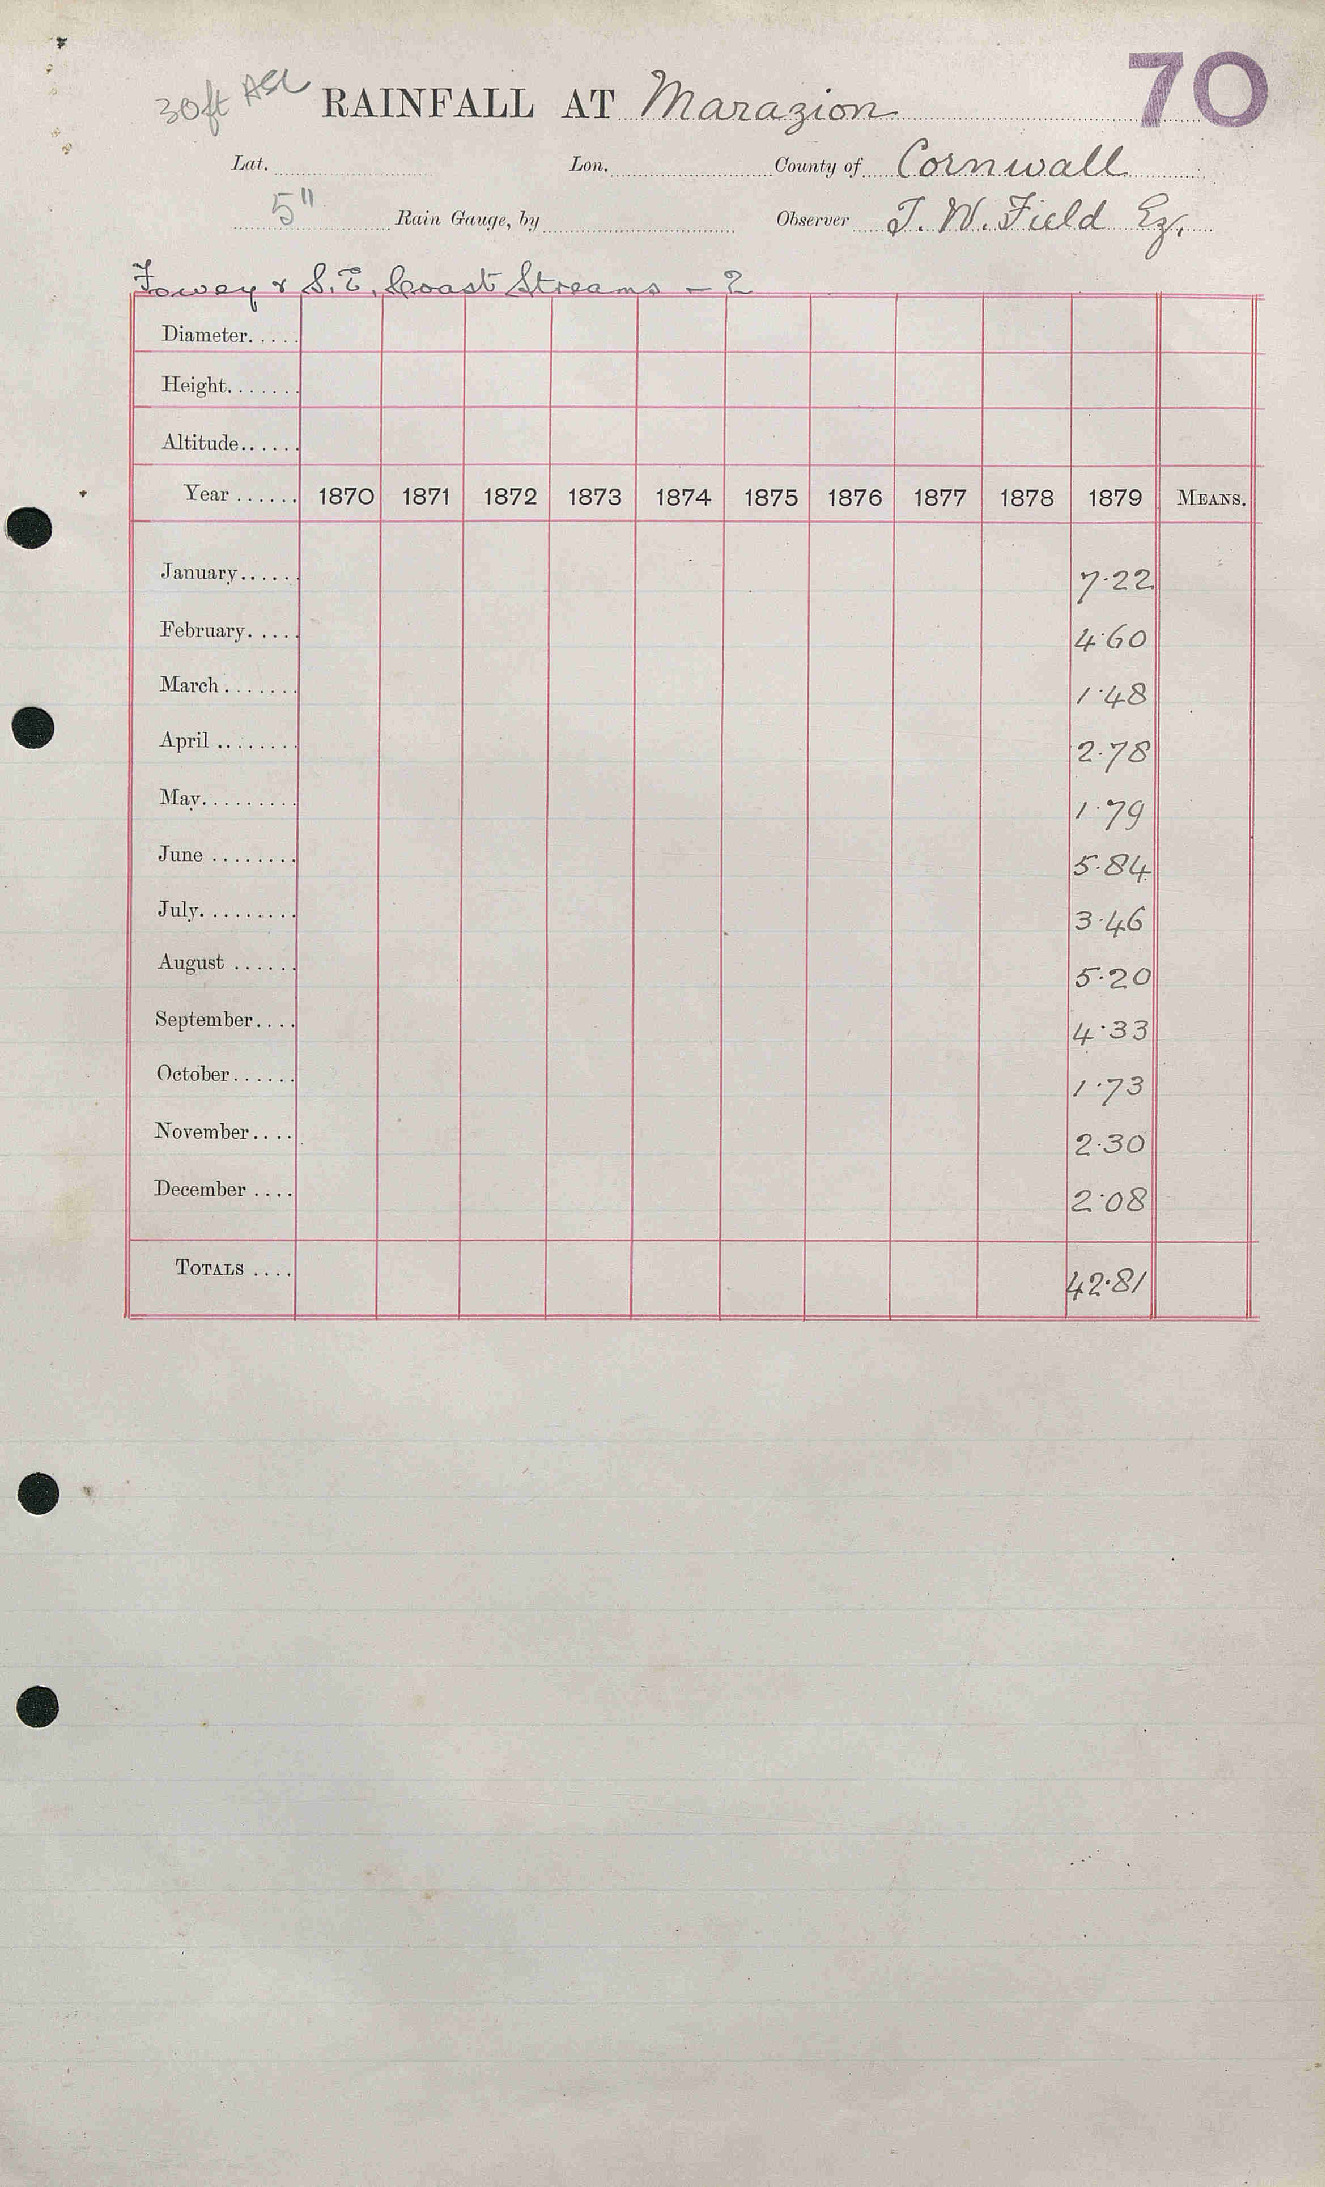 70
30ft ASL RAINFALL AT Marazion
Lat. Lon. County of Cornwall
5" Rain Gauge, by Observer T. W. Field Ez.
Fowey & S.E. Coast Streams - 2
Diameter.....
Height.......
Altitude......
Year ...... 1870 1871 1872 1873 1874 1875 1876 1877 1878 1879 MEANS.
January...... 7.22
February..... 4.60
March....... 1.48
April ........ 2.78
May......... 1.79
June ........ 5.84
July......... 3.46
August ...... 5.20
September.... 4.33
October...... 1.73
November.... 2.30
December .... 2.08
TOTALS .... 42.81